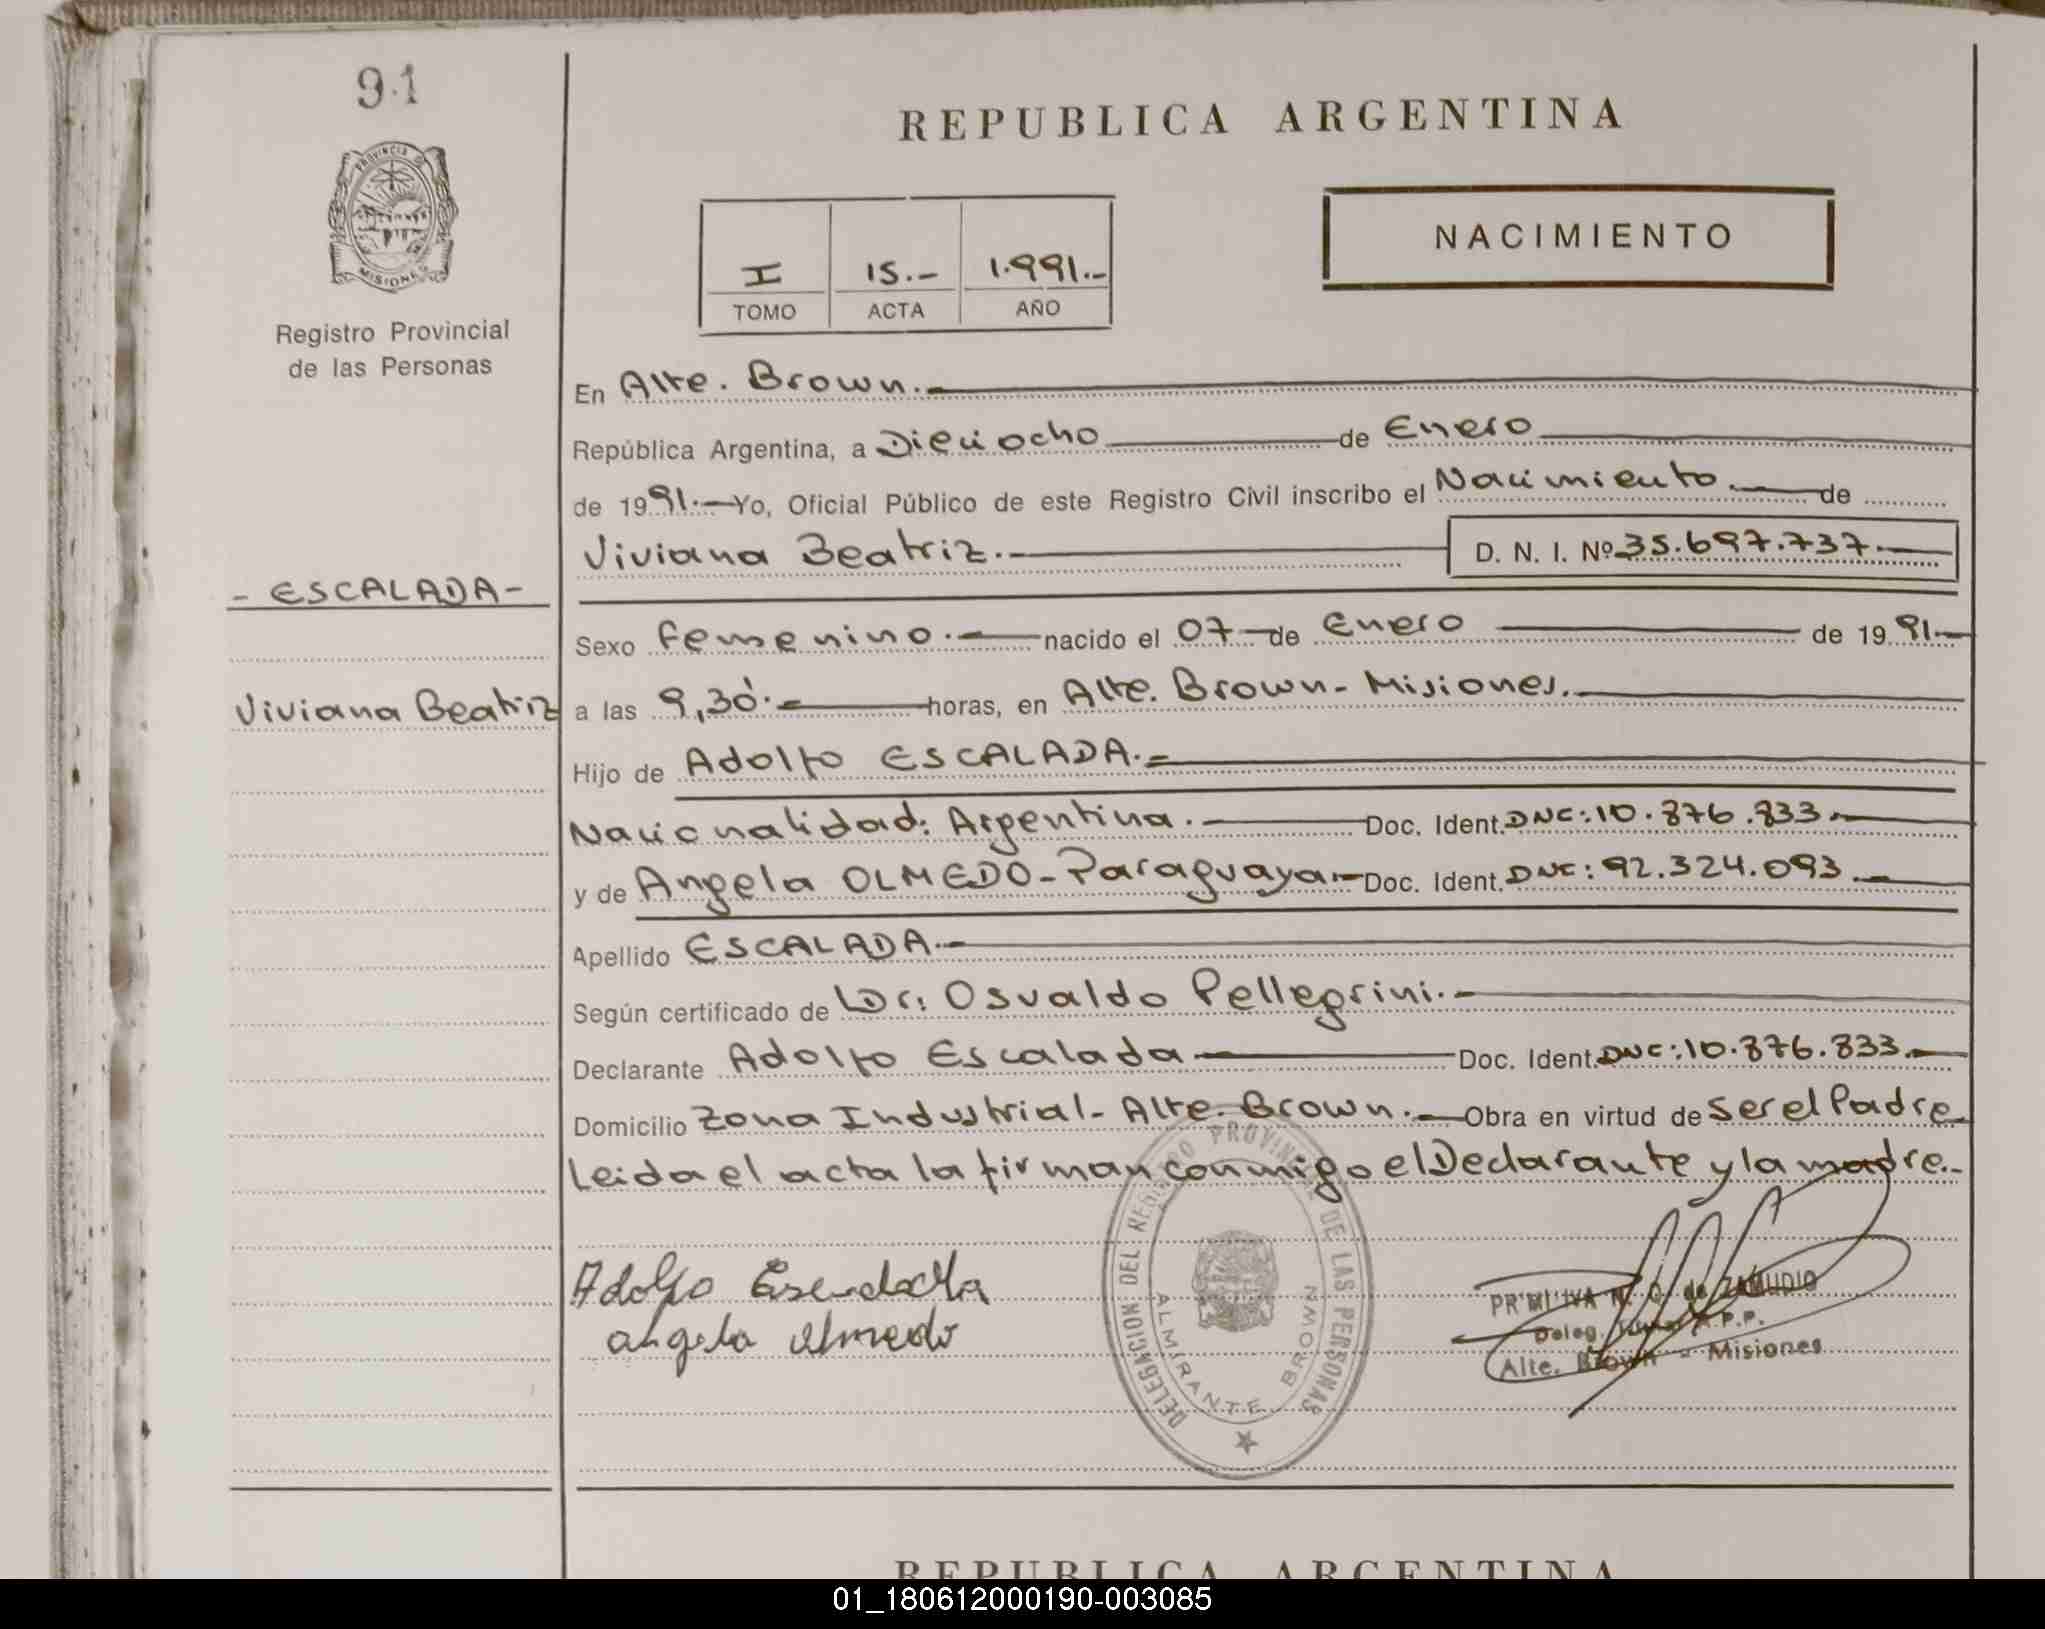 91
PROVINCIA DE
MISIONES
Registro Provincial
de las Personas
REPUBLICA ARGENTINA
NACIMIENTO
I 15.- 1.991.-
TOMO ACTA AÑO
En Alte. Brown.-
República Argentina, a Dieciocho de Enero
de 1991.- Yo, Oficial Público de este Registro Civil inscribo el Nacimiento.- de
Viviana Beatriz.- D. N. I. Nº 35.697.737.-
- ESCALADA -
Sexo femenino.- nacido el 07 de Enero de 1991.-
Viviana Beatriz
a las 9,30'.- horas, en Alte. Brown - Misiones.-
Hijo de Adolfo ESCALADA.-
Nacionalidad: Argentina.- Doc. Ident. DNC: 10.876.833.-
y de Angela OLMEDO - Paraguaya.- Doc. Ident. DNC: 92.324.093.-
Apellido ESCALADA.-
Según certificado de Dr: Osvaldo Pellegrini.-
Declarante Adolfo Escalada Doc. Ident. DNC: 10.876.833.-
Domicilio Zona Industrial - Alte. Brown.- Obra en virtud de ser el Padre
Leida el acta la firman conmigo el Declarante y la madre.-
DELEGACION DEL REGISTRO PROVINCIAL DE LAS PERSONAS
ALMIRANTE BROWN
Adolfo
angela olmedo
PRIMITIVA N. O. de ZAMUDIO
Deleg. R.P.P.
Alte. Brown - Misiones
REPUBLICA ARGENTINA
01_180612000190-003085